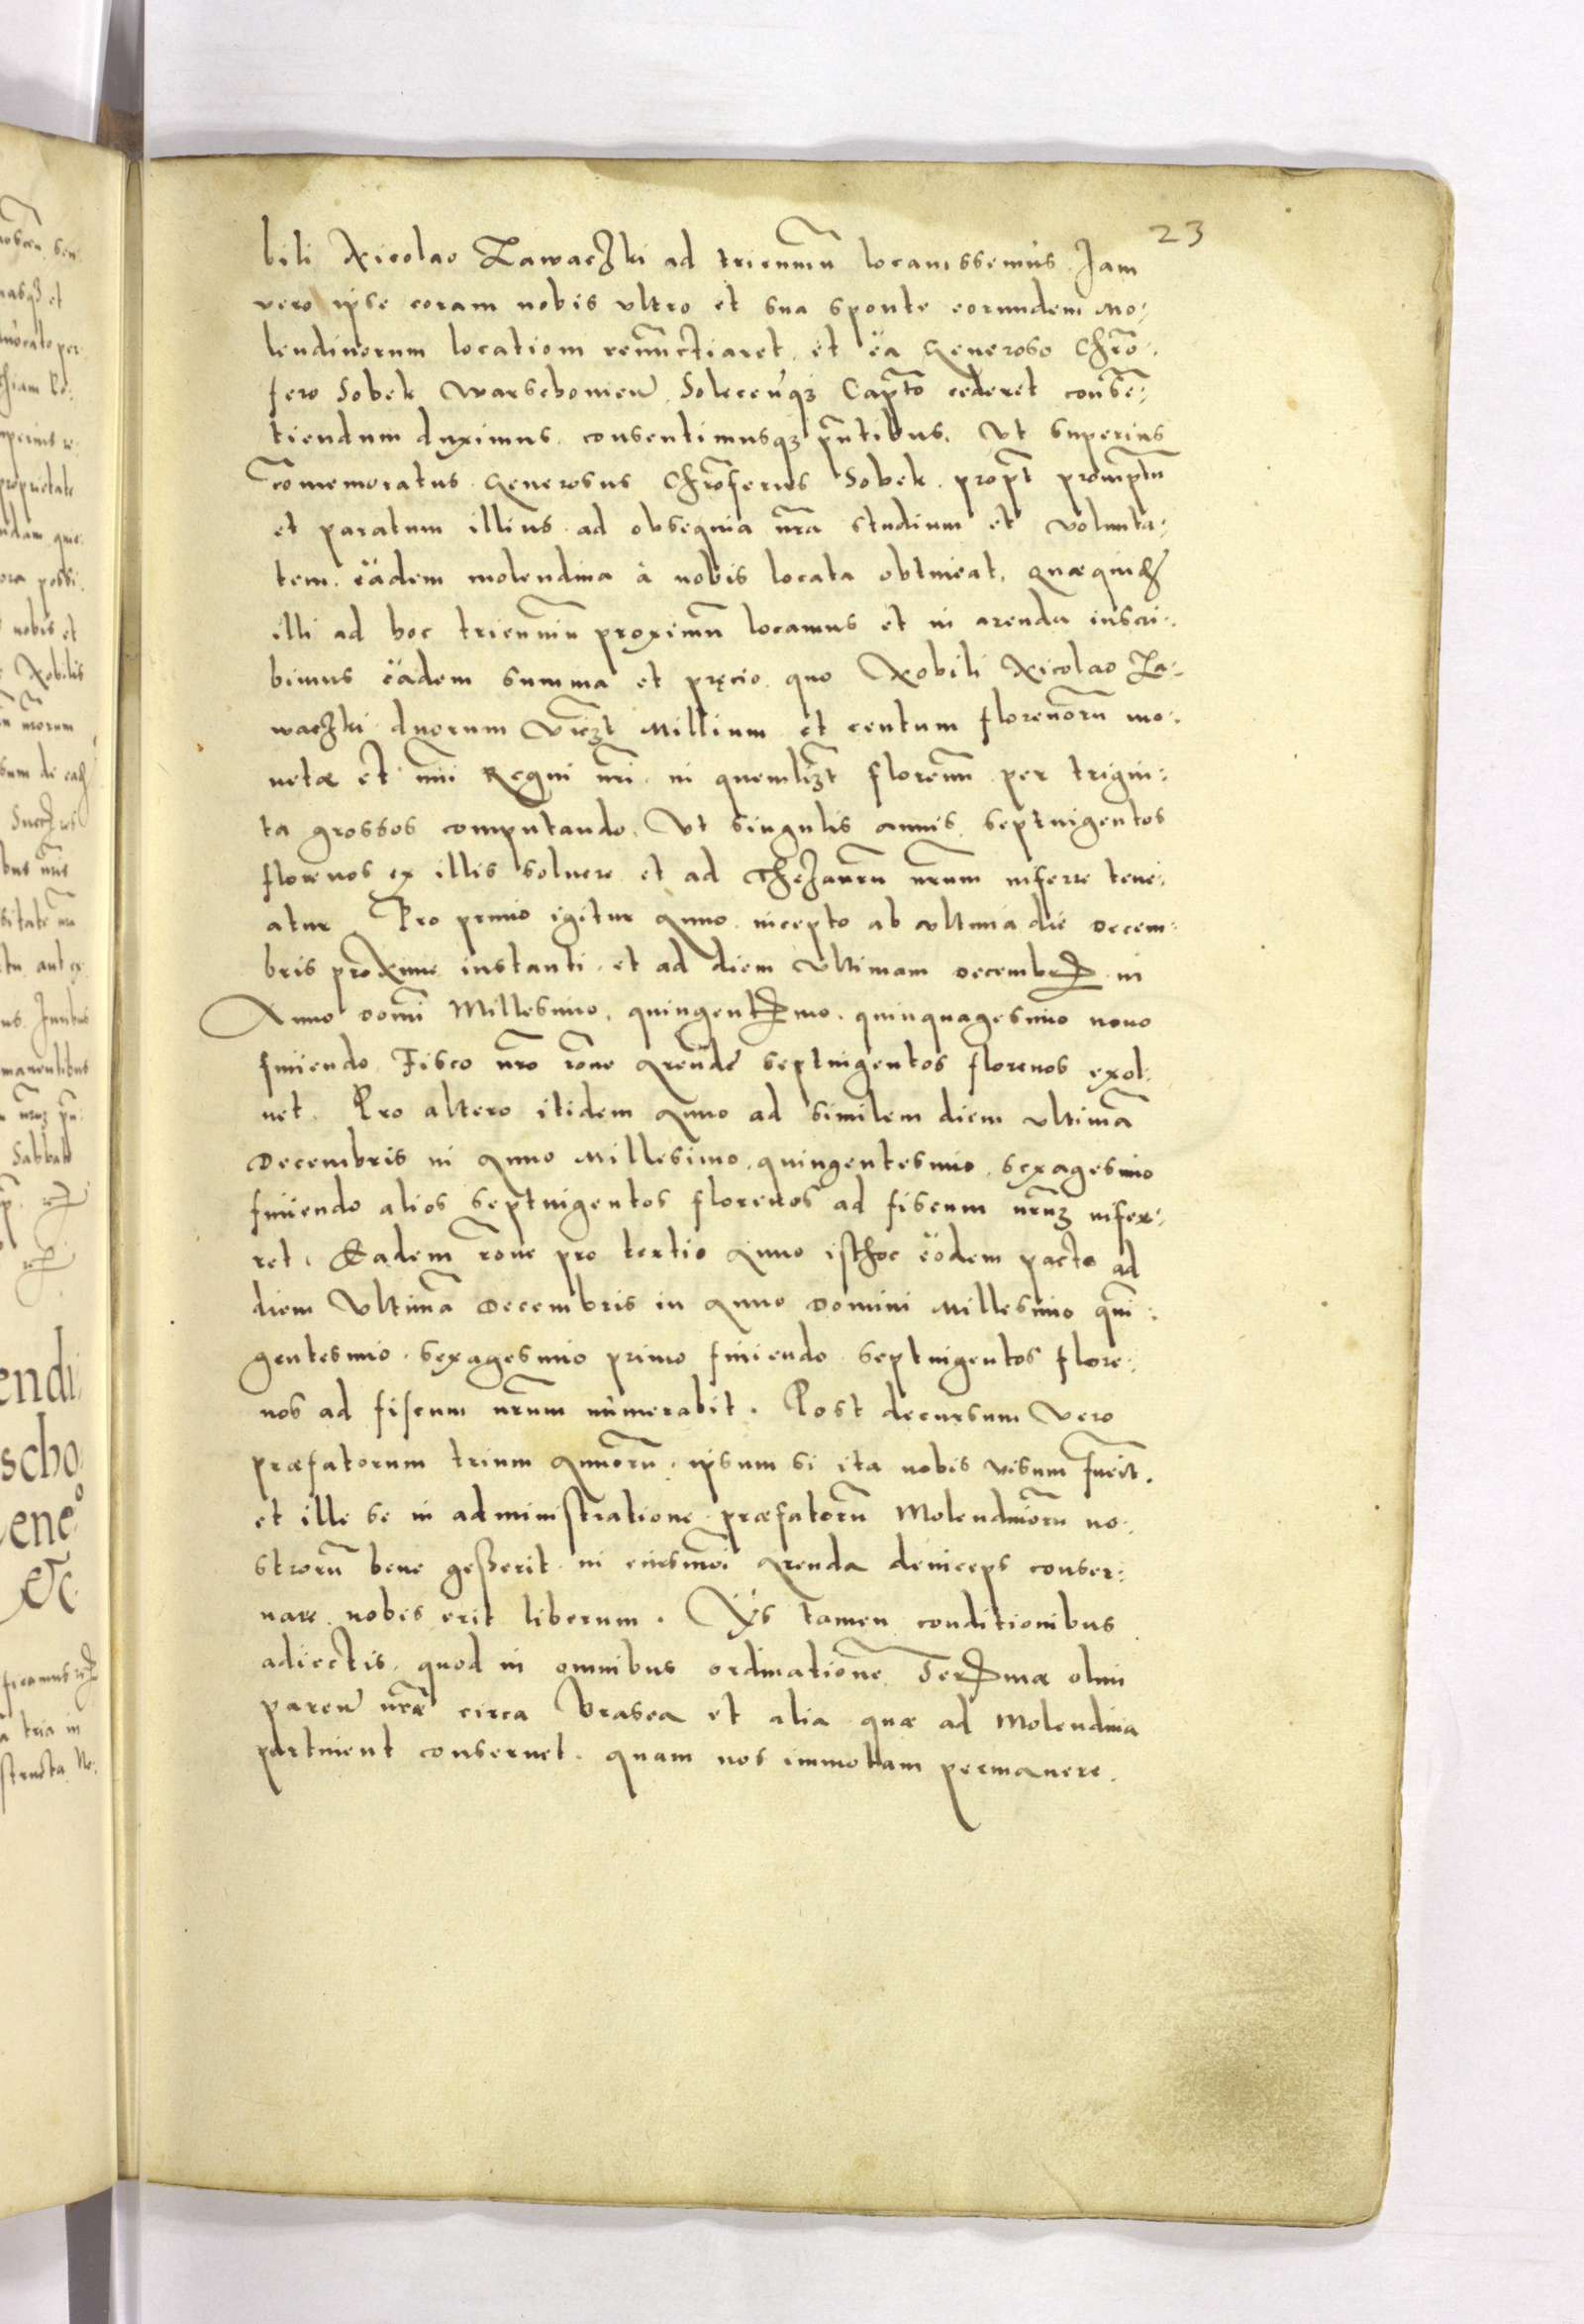 23
bili Nicolao Zawaczki ad trienniũ locauissemus. Jam
vero ipse coram nobis vltro et sua sponte eorundem Mo-
lendinorum locationi renũctiaret, et ea Generoso Chrõ-
fero Sobek Warschouien̄ Solecen̄q3 Capt̃o cederet consẽ-
tiendum duximus, consentimusq3 pñtibus, Vt superius
cõmemoratus Generosus Chrõferus Sobek propt̃ promptũ
et paratum illius ad obsequia nr̃a studium et volunta-
tem eadem molendina à nobis locata obtineat, quæquid̃
illi ad hoc trienniũ proximũ locamus et in arenda inscri-
bimus eadem summa et precio quo Nobili Nicolao Za-
waczki duorum vicz̃t Millium et centum florenorũ mo-
netæ et nũi Regni nr̃i in quemlibz̃t florenũ per trigin-
ta grossos computando, Vt singulis annis septuigentos
florenos ex illis soluere et ad Thezaurũ nr̃um inferre tene-
atur Pro primo igitur Anno incepto ab vltima die Decem-
bris proxime instanti et ad diem vltimam decembr̃ in
Anno domĩ Millesimo, quingentmo quinquagesimo nono
finiendo Fisco nr̃o rõne Arendẽ septuigentos florenos exol-
uet. Pro altero itidem Anno ad similem diem vltimã
Decembris in Anno Millesimo, quingentesimo, sexagesimo
finiendo alios septuigentos florenos ad fiscum nr̃uz infer-
ret. Eadem rõne pro tertio Anno isthoc eodem pacto ad
diem Vltimã Decembris in Anno Domini Millesimo qũi-
gentesimo sexagesimo primo finiendo septuigentos flore-
nos ad fiscum nr̃um numerabit. Post decursum vero
præfatorum trium Annorũ ipsum si ita nobis visum fueit̃
et ille se in administratione præfatorũ Molendinorũ no-
strorũ bene geßerit in eiusmõi Arenda deinceps conser-
uare nobis erit liberum. Ys tamen conditionibus
adiectis, quod in omnibus ordinationẽ Sermæ olim
paren̄ nr̃æ circa brasea et alia quæ ad Molendina
pertinent conseruet quam nos immotam permanere